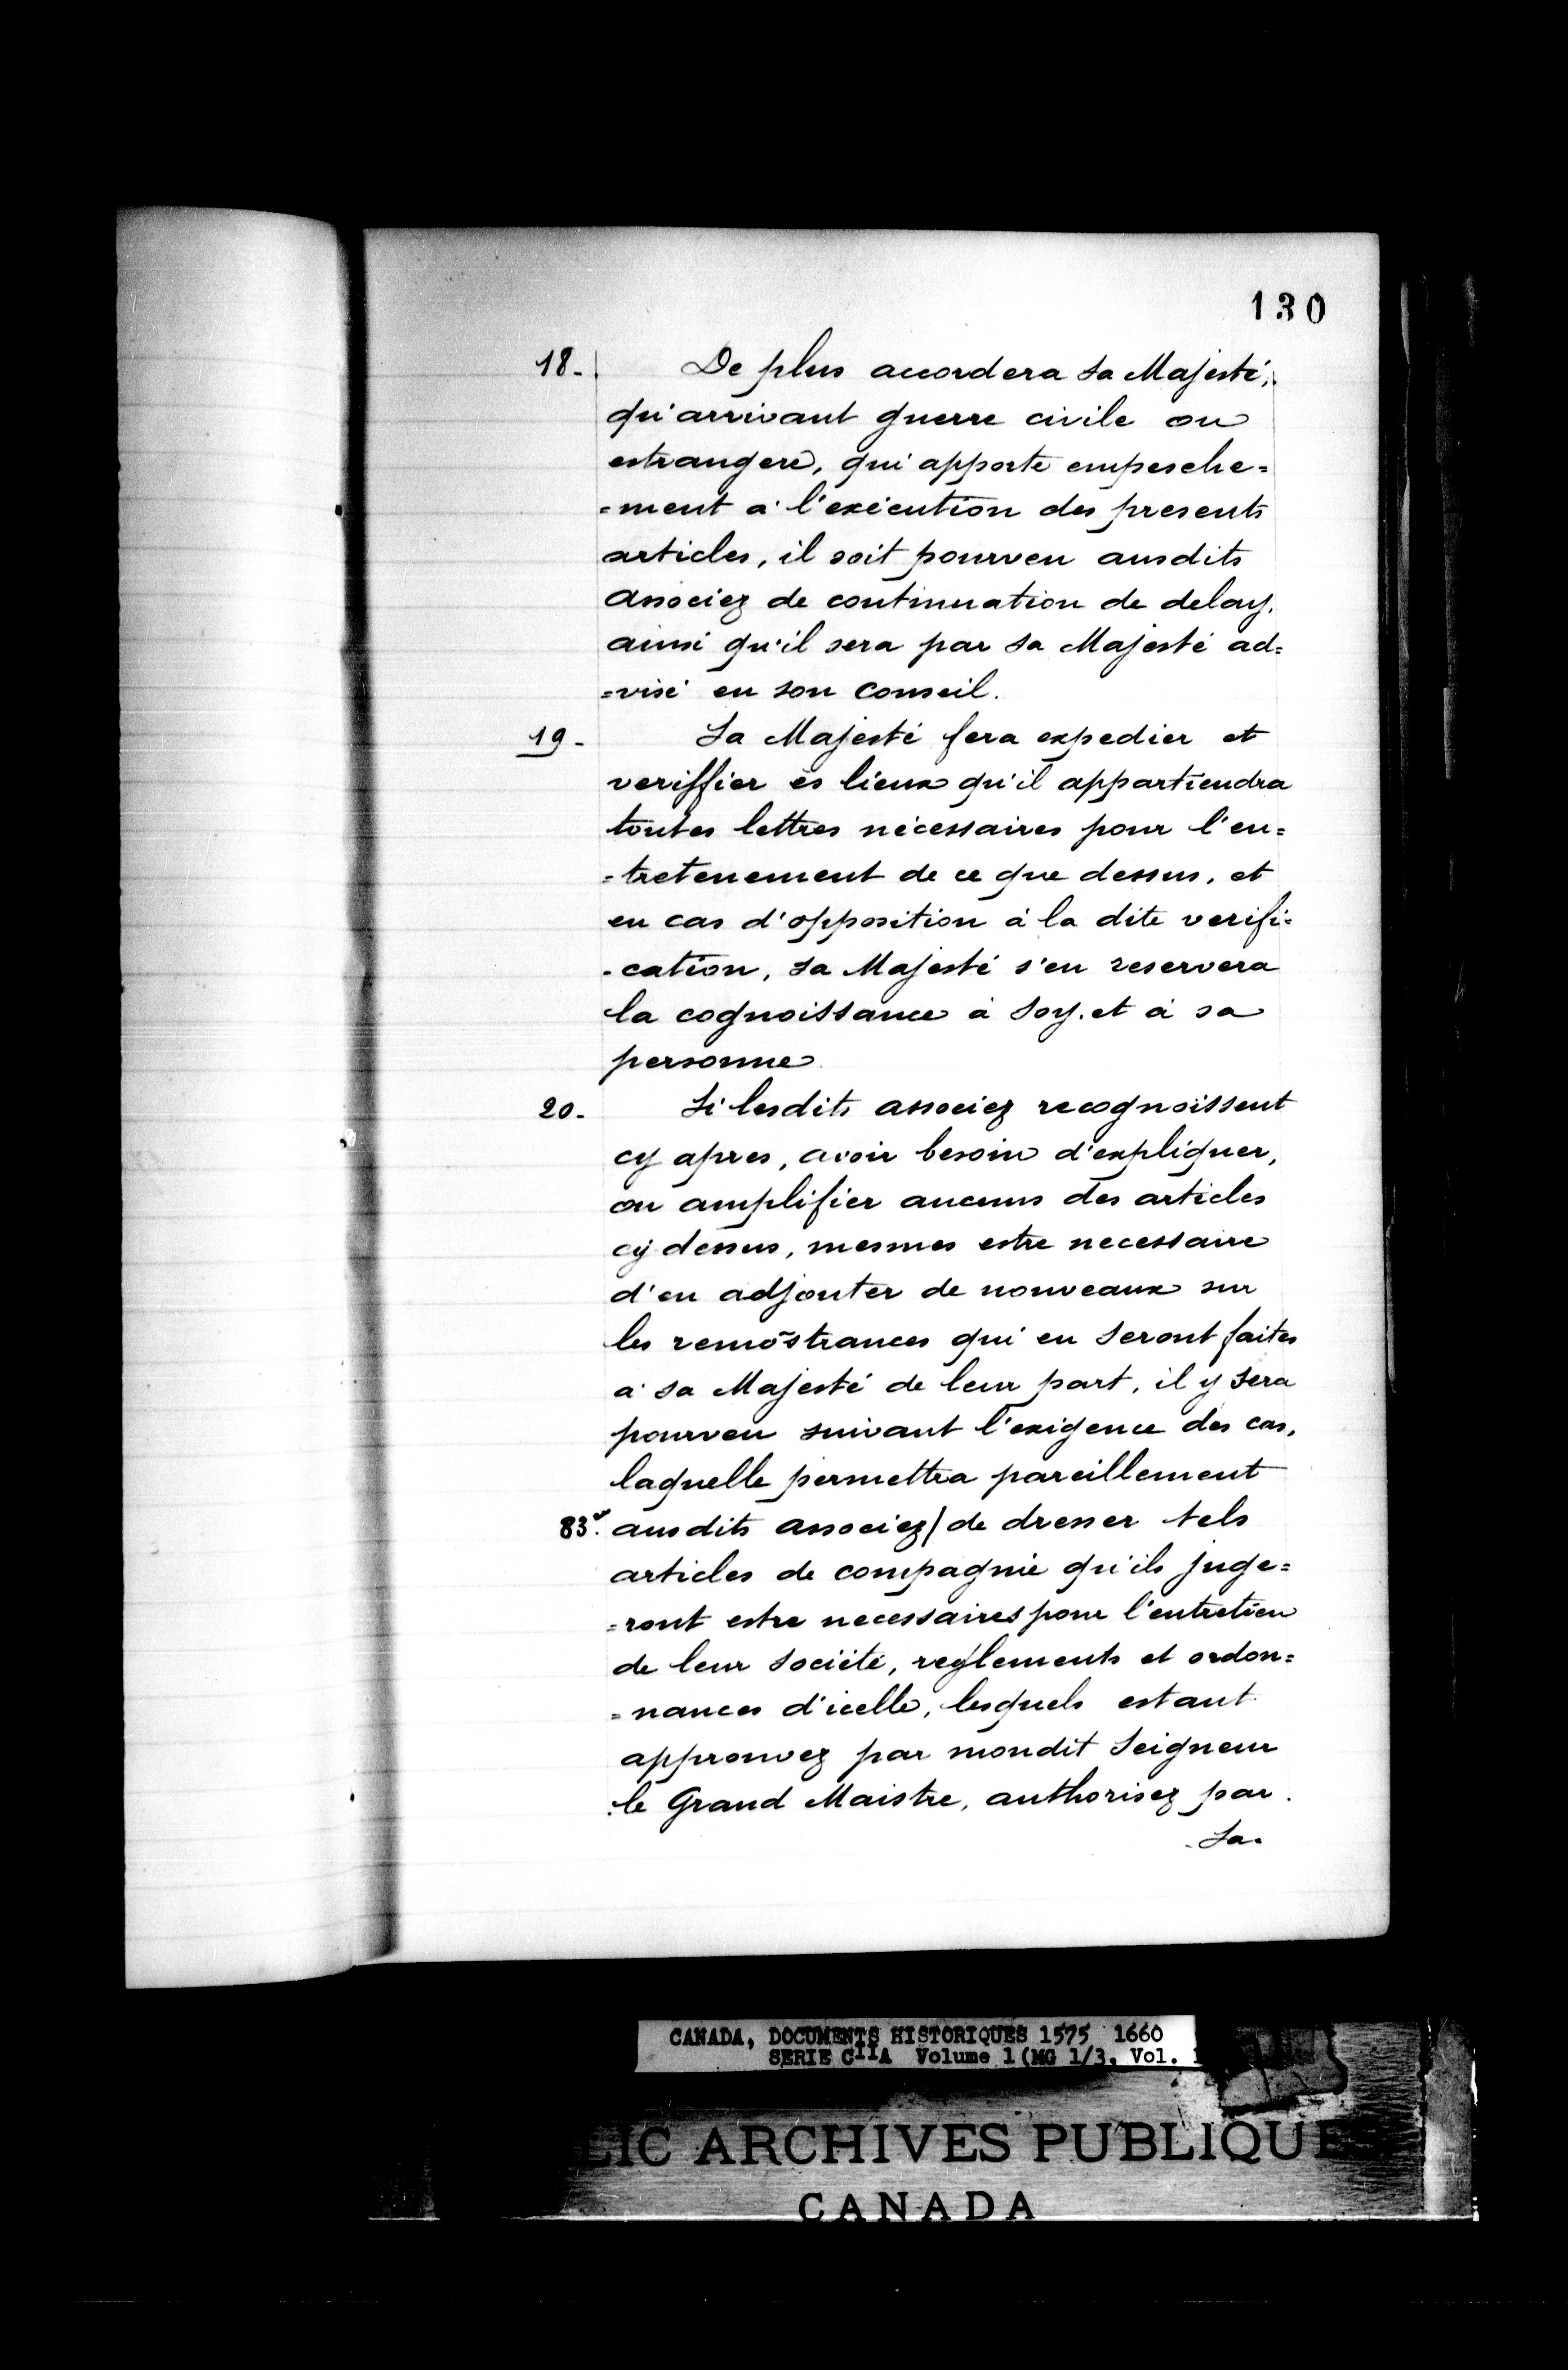 130
18. De plus accordera sa Majesté,
qu'arrivant guerre civile ou
estrangere, qui apporte empesche=
=ment a l'exécution des presents
articles, il soit pourveu ausdits
associez de continuation de delay,
ainsi qu'il sera par sa Majesté ad=
=visé en son conseil.
19. Sa Majesté fera expedier et
veriffier es lieux qu'il appartiendra
toutes lettres nécessaires pour l'en=
=tretenement de ce que dessus, et
en cas d'opposition à la dite verifi=
=cation, sa Majesté s'en reservera
la cognoissance à soy et à sa
personne
20. Si lesdits associez recognoissent
cy apres, avoir besoin d'expliquer,
ou amplifier aucuns des articles
cy dessus, mesmes estre necessaire
d'en adjouter de nouveaux sur
les remõstrances qui en seront faites
a sa Majesté de leur part, il y sera
pourveu suivant l'exigence des cas,
laquelle permettra pareillement
83.v ausdits associez/ de dresser tels
articles de compagnie qu'ils juge=
=ront estre necessaires pour l'entretien
de leur société, reglements et ordon=
=nances d'icelle, lesquels estant
approuvez par mondit Seigneur
le Grand Maistre, authorisez par
Sa
CANADA, DOCUMENTS HISTORIQUES 1575 1660
SERIE CIIA Volume 1 (MG 1/3, Vol. 1
LIC ARCHIVES PUBLIQUE
CANADA